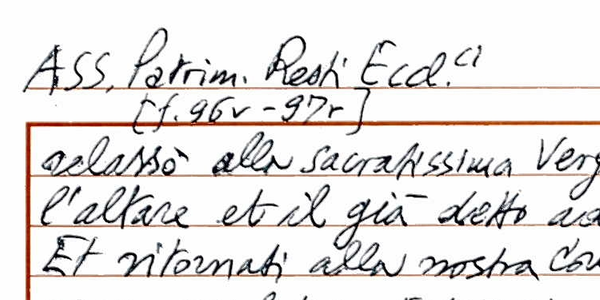 ASS, Patrim. Resti Eccl.ci
[f. 96v - 97r]
alla sacratissima Verg
l'altare et il già detto
Et ritornati alla nostra Cou